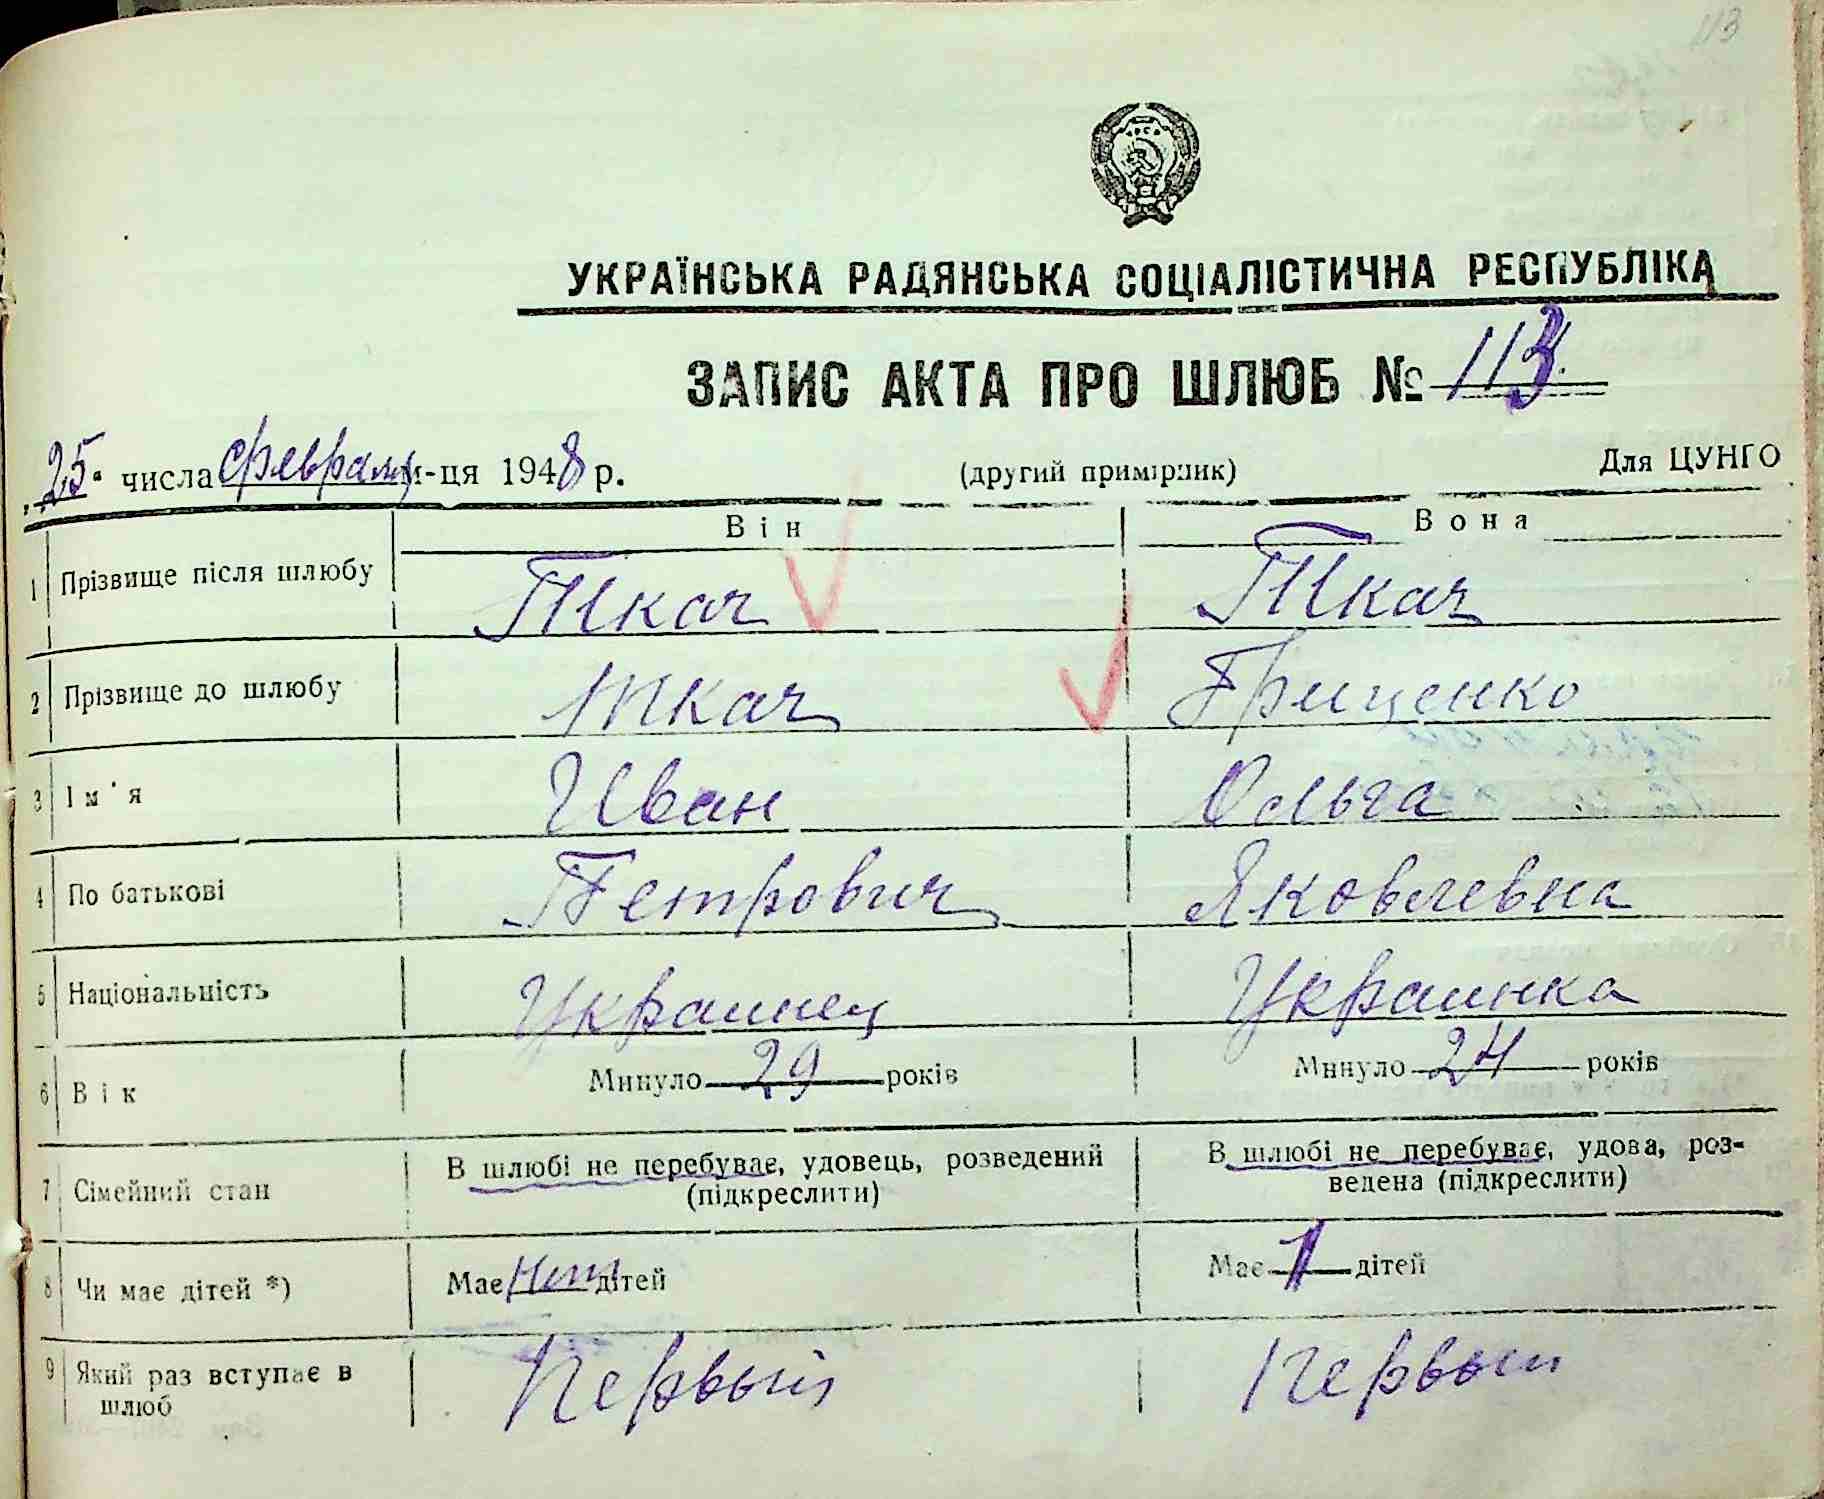 113
УКРАЇНСЬКА РАДЯНСЬКА СОЦІАЛІСТИЧНА РЕСПУБЛІКА
ЗАПИС АКТА ПРО ШЛЮБ № 113.
25 числа февраля м-ця 1948 р. (другий примірник) Для ЦУНГО
Він Вона
1 Прізвище після шлюбу Ткач Ткач
2 Прізвище до шлюбу Ткач Гриценко
3 Ім'я Иван Ольга
4 По батькові Петрович Яковлевна
5 Національність Украинец Украинка
6 Вік Минуло 29 років Минуло 24 років
7 Сімейний стан В шлюбі не перебуває, удовець, розведений (підкреслити) В шлюбі не перебуває, удова, роз-
ведена (підкреслити)
8 Чи має дітей *) Має нет дітей Має 1 дітей
9 Який раз вступає в шлюб Первый Первый